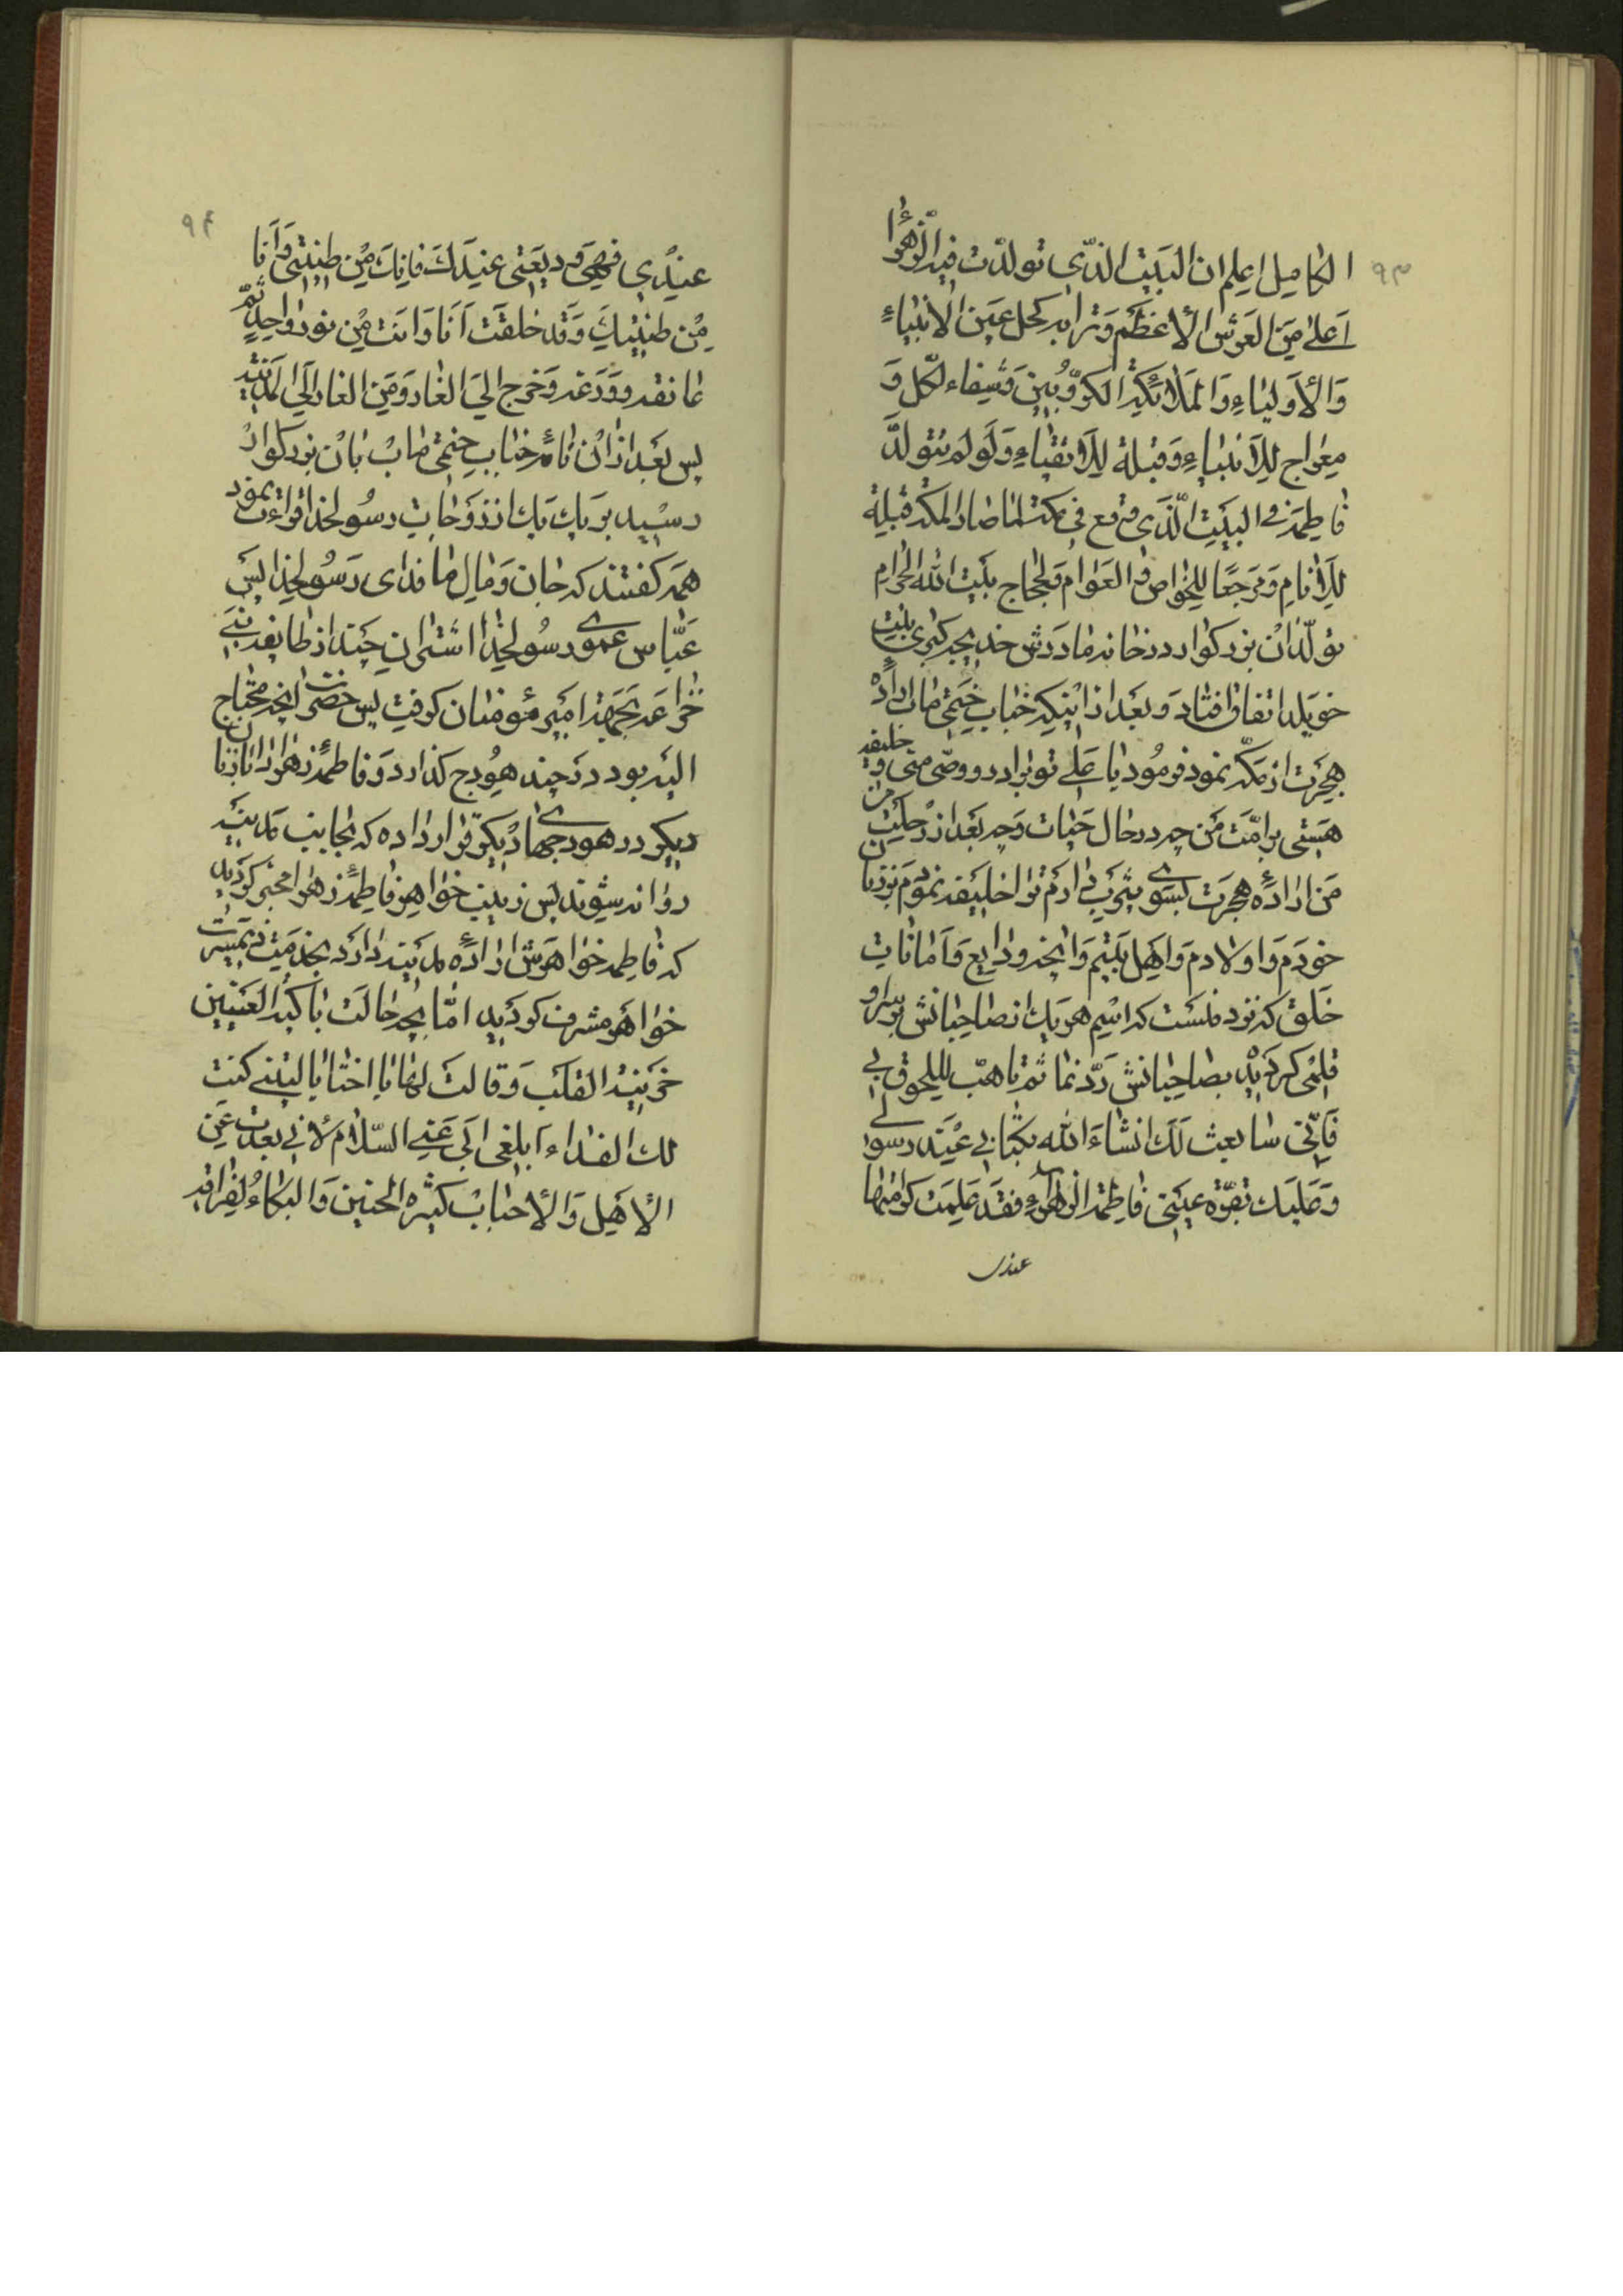 ۹۳
الکامیل اعلم ان البیت الذّی تولدّت فیه الزّهرٰاء
اَعلیٰ مِنَ العَرش الأعظَم وَترابه کحل عَین الانبیٰاءِ
وَالأولیٰاءِ وَالمَلائکة الکرّوبینَ وَشفاء لکّل وَ
معراج للِأنبیٰاءِ وَقبلة للِأتقیٰاءِ وَلَو لم یتولّد
فٰاطِمَة فی البَیت الّذی وقع فی مکّة لمٰا صٰار المکّة قبلة
للِأنامِ وَمَرجَعًا للِخوٰاص وَالعَوٰام وَلحجّاج بَیت الله الحرٰامِ
تولّد آن بزرکوار در خانه مادَرش خدیجه کبری بنت
خویلد اتفاق افتاد وَبعَد از اینکه جناب ختمی مٰاب ارادهٔ
هجرَت از مکّه نمود فرمُود یا عَلی تو برادر و وصّی منی و خلیفه
هَستی بر امّت مَن چه در حال حَیات وَچه بَعد از رحلَت من
مَن ارادهٔ هجرَت بسوی یثرب دٰارم ترا خلیفه نمودم بر زنان
خودم وَاولادم وَاهل بَیتم وَانچه ودٰایع وَامانات
خَلق که نزد منست که اسِم هر یک از صٰاحبٰانش بر سر او
قلمی کردَیده بصٰاحبٰانش رَدّ نما ثم تٰاهبّ لللحوق بی
فَاِنّی سٰابعث لَكَ انشٰاءَ الله بکتٰابی عنَد رسولی
وَعَلیَك بقرّة عینَی فٰاطِمة الزهرٰاءِ فقَد عَلِمَت کرامتها
عندی
۹۴
عِندی فهیَ وَدیعَتی عِندَكَ فاِنكَ مِن طینَتی وَاَنا
مِن طینتِكَ وَقَد خلقَت اَنَا وَانت مِن نور وٰاحِدٍ ثمّ
عٰانقه ووَدّعَه وَخرج الیَ الغٰار وَمَن الغار الَی المَدینة
پس بَعَد از آن نامهٔ جنٰاب ختمی مٰاب بٰان بزرکوار
رسَید بر یك یك از زوَجات رسُولخدا قرائت نمود
همَه کفتند که جان وَمٰال ما فدای رَسُولخدا پس
عَبّاس عموی رسُولخدا اشتران چَند از طایفه بنَی
خزٰاعَه بجهَة امیر مؤمنان کرفت پس حضرت انچه محتاج
الیه بود درَ چند هوُدج کذارد وَفاطمهٔ زهرا را با زنان
دیکر در هودجهای دیکر قرار داده که بجانب مدینَه
روٰانه شوند پس زینب خوٰاهر فاطمهٔ زهرا مخبر کردَید
که فاطمه خوٰاهرش ارادهٔ مدَینه دٰارَد بخدمَت همَشیره
خوٰاهر مشرف کردَید امّا بچه حٰالَت باکیة العَنیین
حزَینة القلَب وَقالتَ لها یا اختٰا یا لیتنی کنت
لك الفدٰاء اَبلغی ابَی عَنی السّلام لأنی بعدت عَن
الأهَل وَالأحبٰاب کثیره الحنین وَالبکٰاءُ لفِراقه